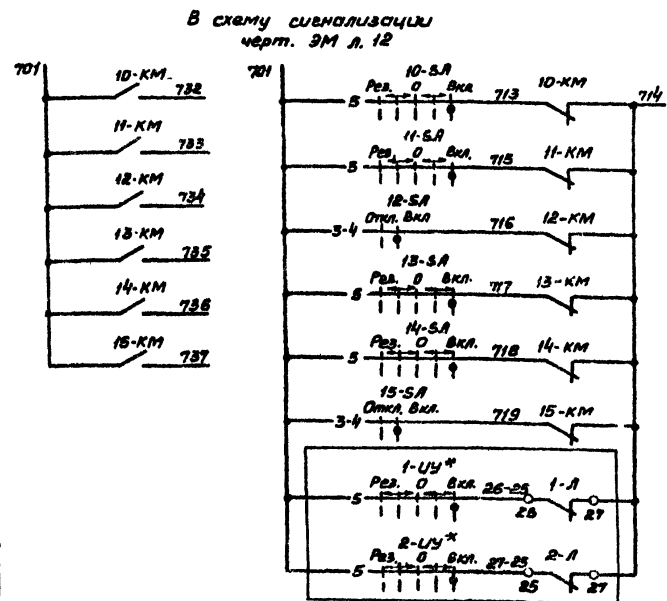 В схему сигнализации
черт. ЭМ л. 12
701
10-КМ
732
11-КМ
733
12-КМ
734
13-КМ
735
14-КМ
736
15-КМ
737
701
10-SA
Рез. 0 Вкл
5
713
10-КМ
714
11-SA
Рез. 0 Вкл.
5
715
11-КМ
12-SA
Откл. Вкл
3-4
716
12-КМ
13-SA
Рез. 0 Вкл.
5
717
13-КМ
14-SA
Рез. 0 Вкл.
5
718
14-КМ
15-SA
Откл. Вкл.
3-4
719
15-КМ
1-ЦУ*
Рез. 0 Вкл.
5
26-25
1-Л
27
2-ЦУ*
Рез. 0 Вкл.
5
27-25
2-Л
25
27